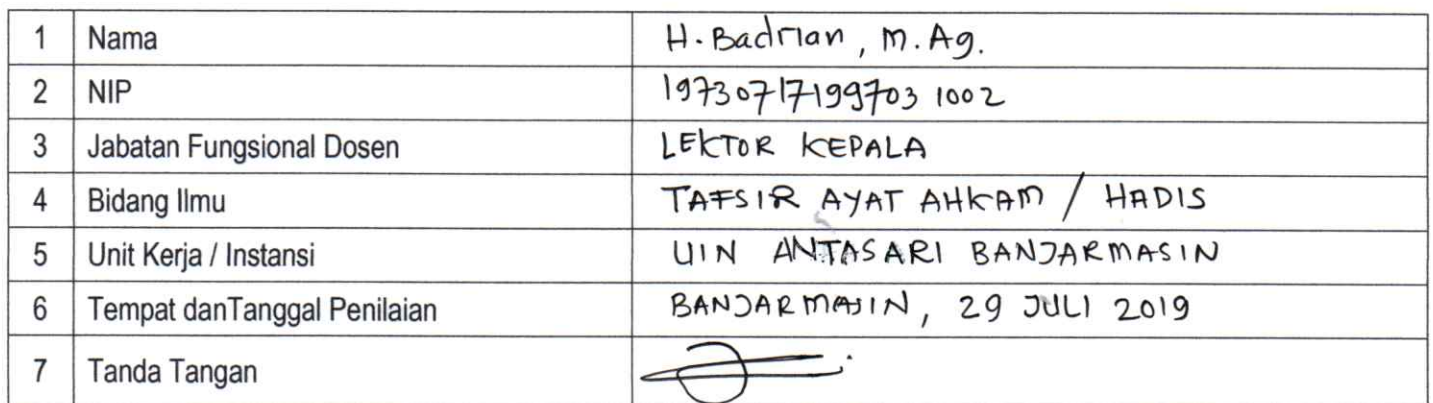 1 Nama H. Badrian, M.Ag.
2 NIP 197307171997031002
3 Jabatan Fungsional Dosen LEKTOR KEPALA
4 Bidang Ilmu TAFSIR AYAT AHKAM / HADIS
5 Unit Kerja / Instansi UIN ANTASARI BANJARMASIN
6 Tempat danTanggal Penilaian BANJARMASIN, 29 JULI 2019
7 Tanda Tangan